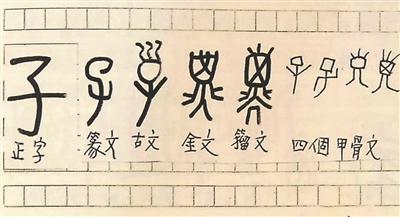 子
正字 篆文 古文 金文 籀文 四個甲骨文